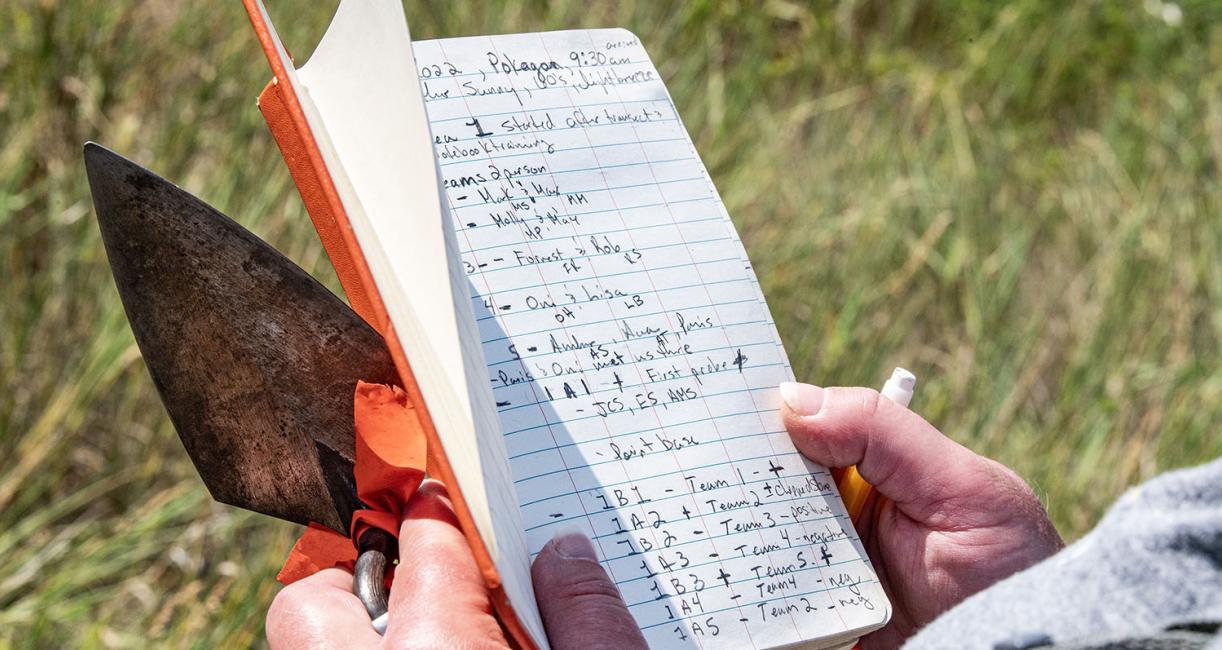 around
2022, Pokagon, 9:30am
Sunny, 80's, light breeze
ea 1 started after transect &
notebook training
eams 2 person
- Mark & Max
MS MM
- Molly & May
MP
3 - - Forrest & Rob
FH RS
4 - Oni & Lisa
OH LB
5 - Andre, Ava, Paris
AS
- Paris & Oni met us here
- 1A1 - + First probe +
- JCS, ES, AMS
- Point base
- 1B1 - Team 1 - +
1A2 + Team 2 ±
1B2 - Team 3 - positive
1A3 - Team 4 - negative
1B3 + Team 5. +
1A4 - Team 4 - neg
1A5 - Team 2 - neg